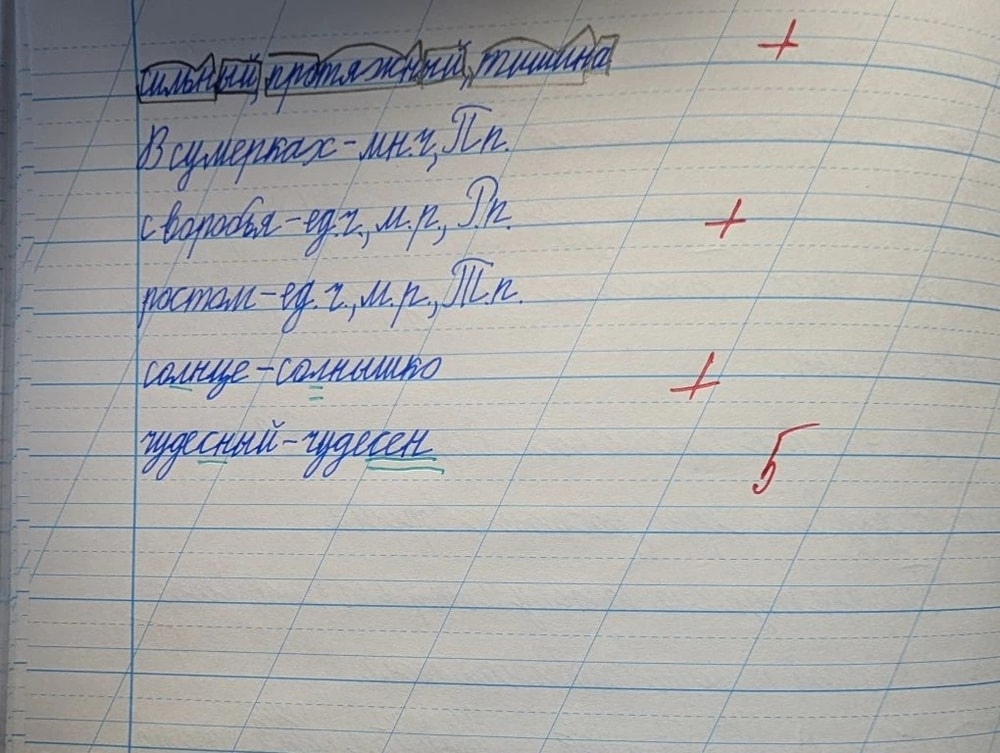 сильный, протяжный, тишина +
В сумерках - мн.ч, П.п.
с воробья - ед.ч., м.р., Р.п. +
ростом - ед.ч., м.р., Т.п.
солнце - солнышко +
чудесный - чудесен
5